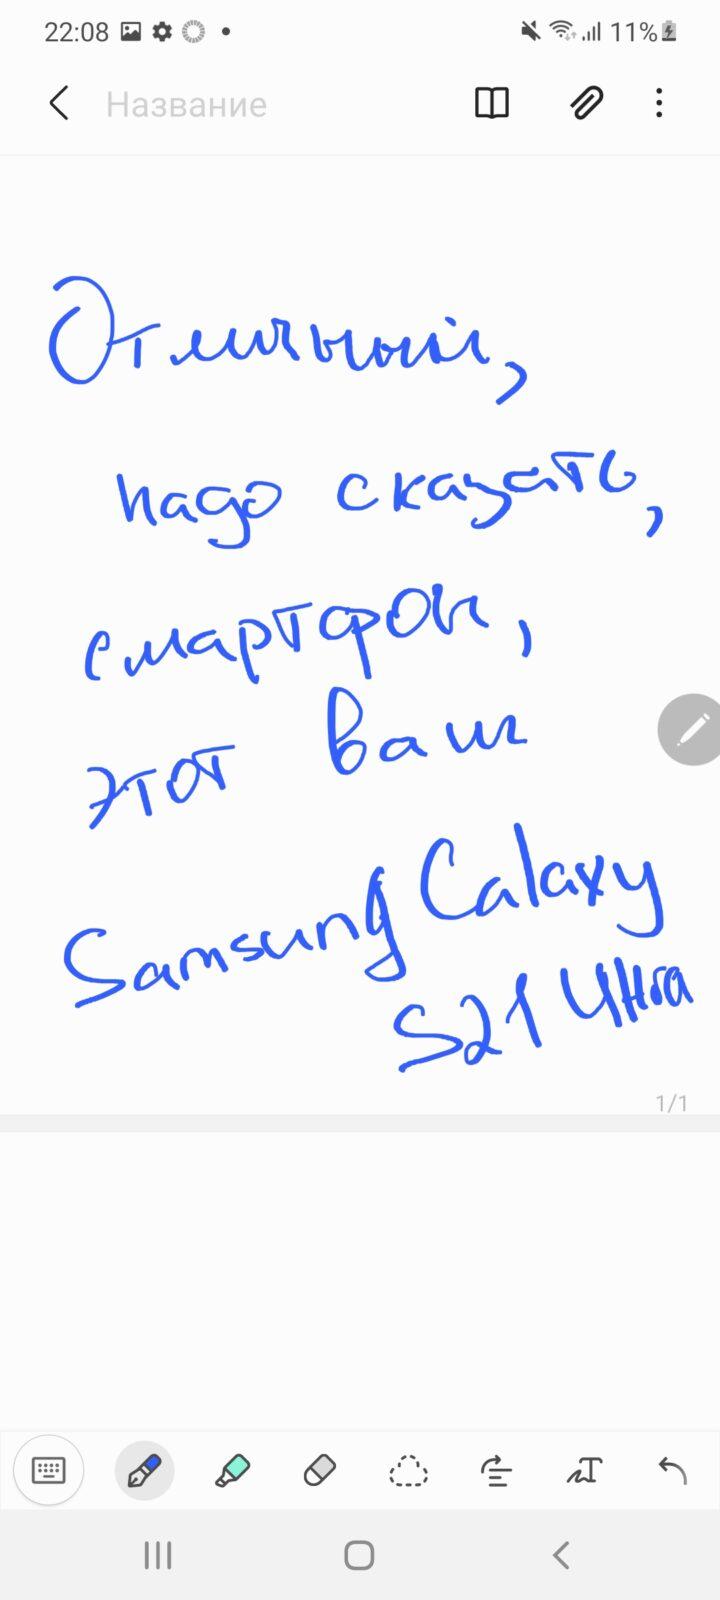 22:08 11%
Название
Отличный,
надо сказать,
смартфон,
этот ваш
Samsung Galaxy
S21 Ultra
1/1
T